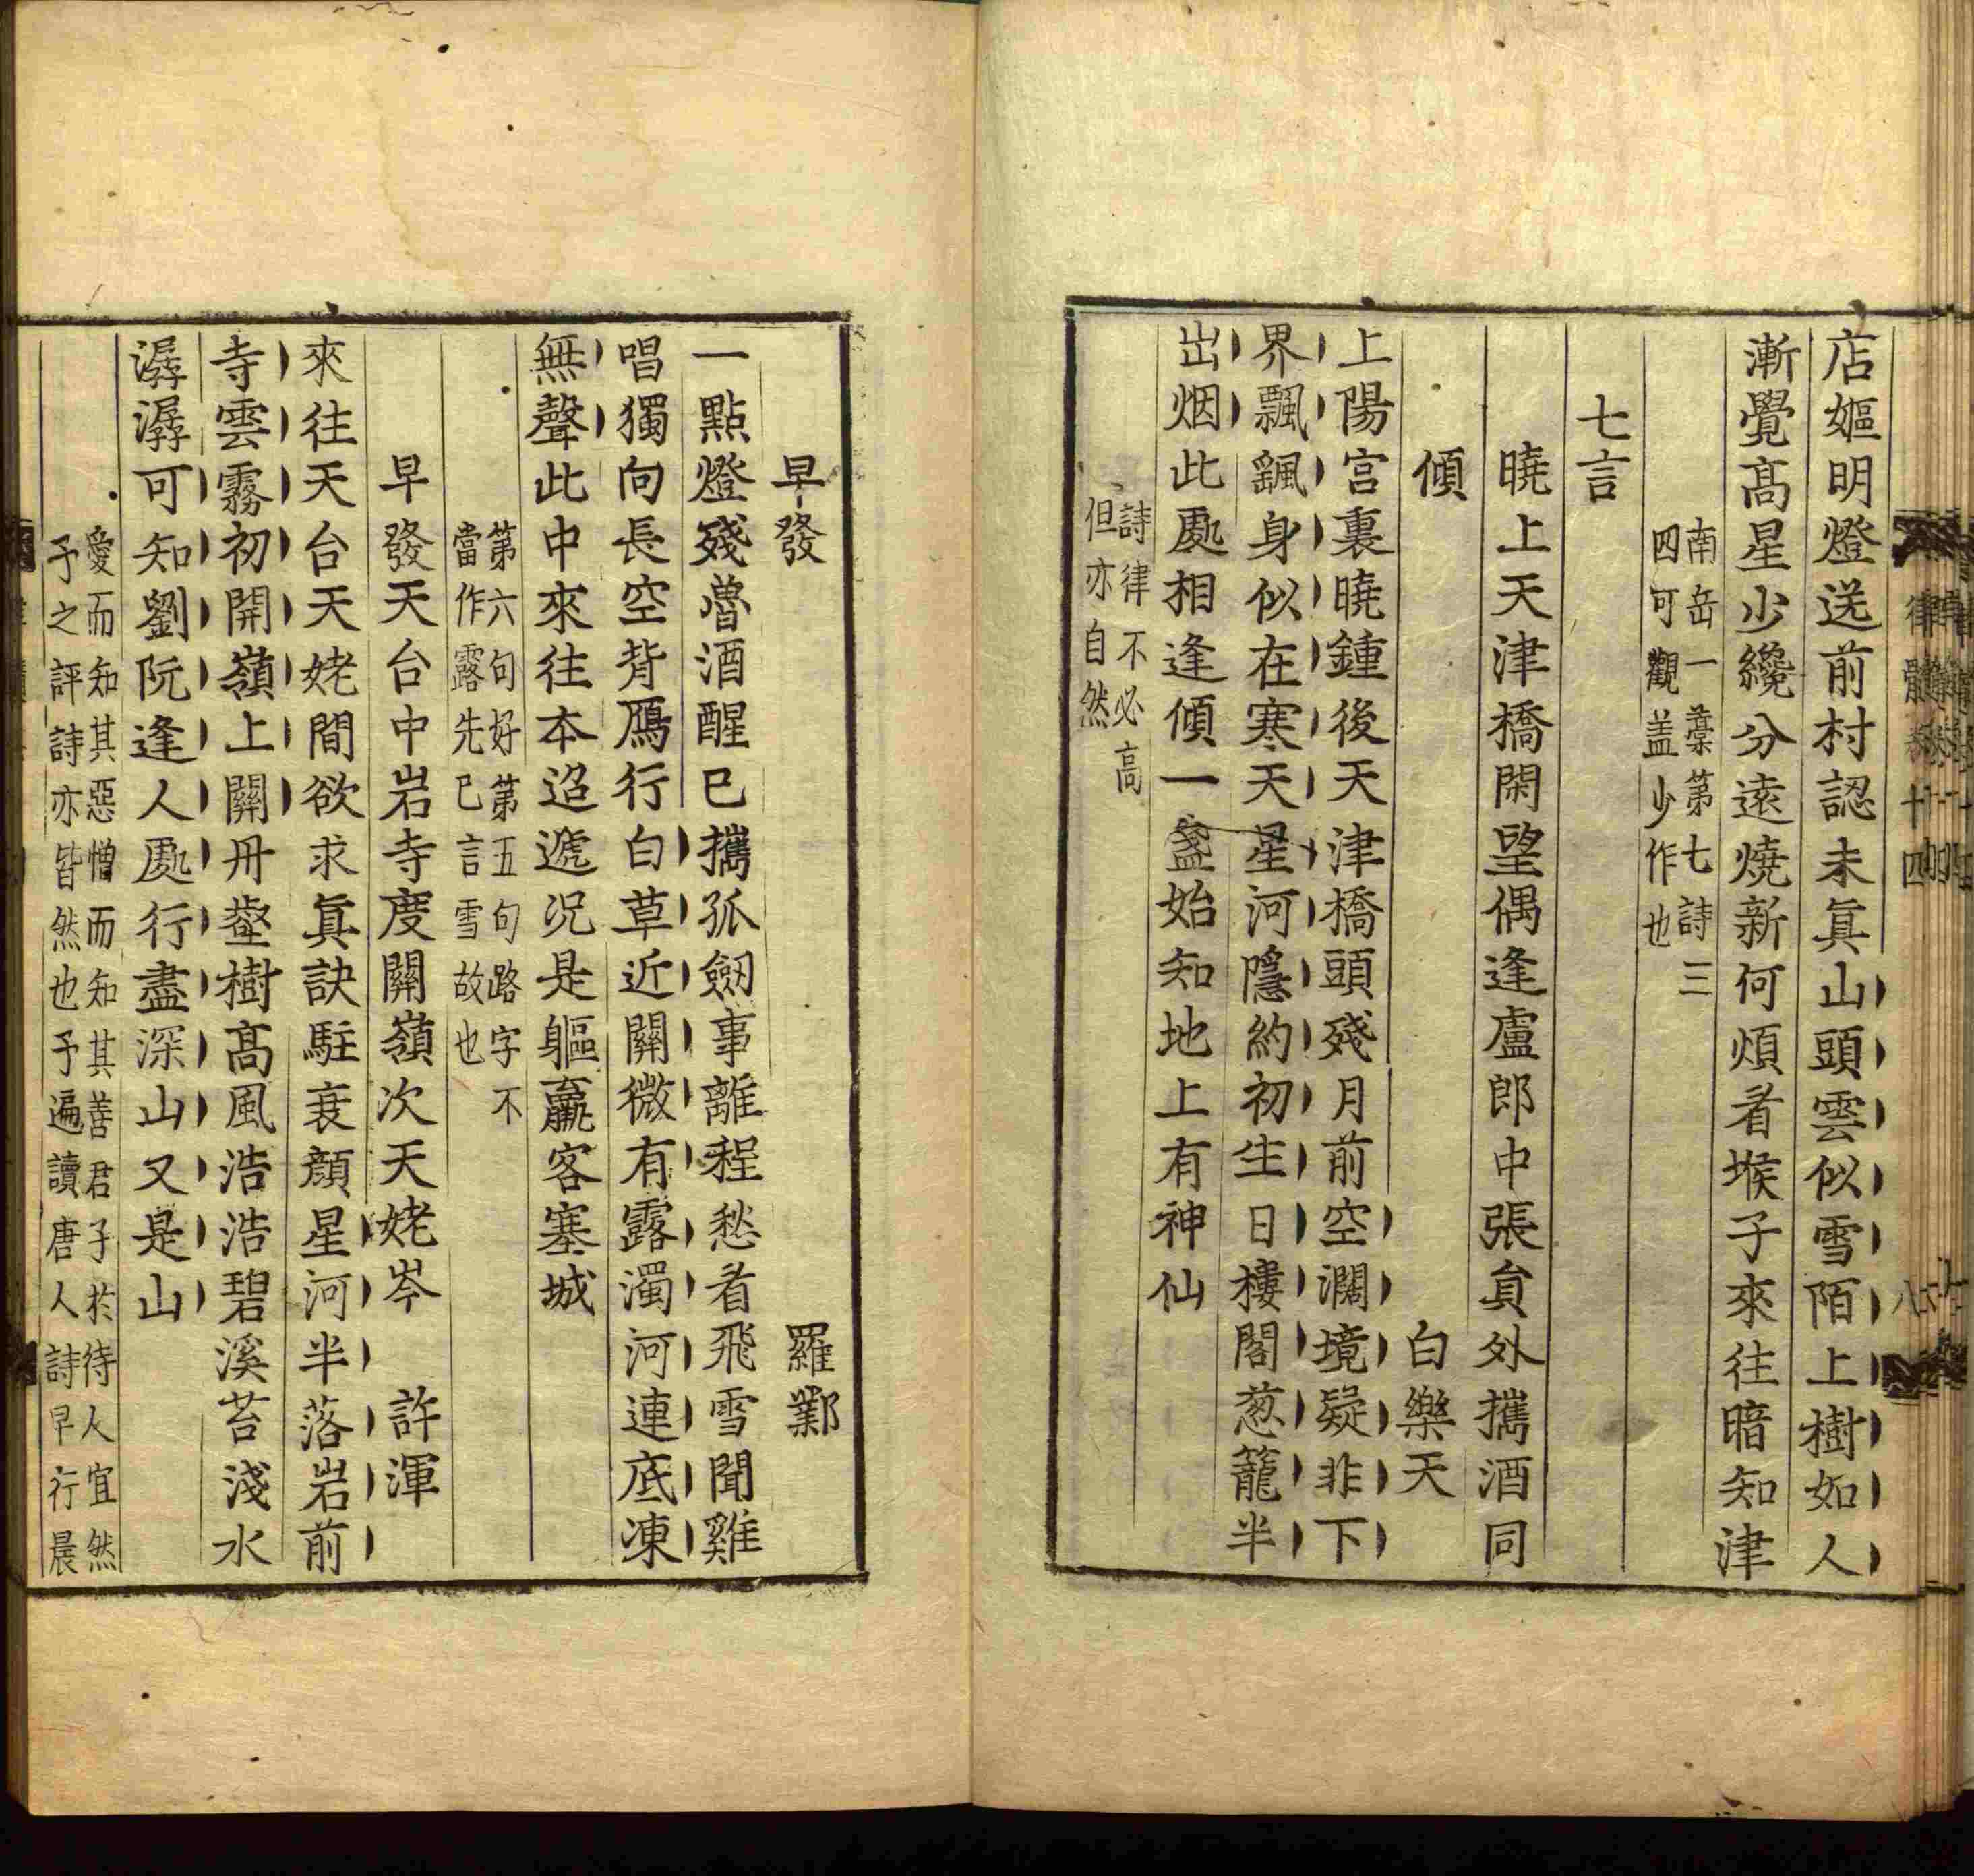 店嫗明燈送前村認未眞山頭雲似雪陌上樹如人
漸覺髙星少纔分遠燒新何煩看堠子來往暗知津
南岳一藁第七詩三
四可觀盖少作也
七言
曉上天津橋閑望偶逢盧郎中張負外攜酒同
傾　白樂天
上陽宫裏曉鍾後天津橋頭殘月前空濶境疑非下
界飄飖身似在寒天星河隱約初生日樓閣葱籠半
出烟此處相逢傾一盞始知地上有神仙
詩律不必高
但亦自然
早發　羅鄴
一點燈殘魯酒醒已攜孤劒事離程愁看飛雪聞雞
唱獨向長空背鴈行白草近關微有露濁河連底凍
無聲此中來往本迢遞况是軀羸客塞城
第六句好第五句路字不
當作露先已言雪故也
早發天台中岩寺度關嶺次天姥岑　許渾
來往天台天姥間欲求眞訣駐衰顔星河半落岩前
寺雲霧初開嶺上關丹壑樹髙風浩浩碧溪苔淺水
潺潺可知劉阮逢人處行盡深山又是山
愛而知其惡憎而知其善君子於待人宜然
予之評詩亦皆然也予遍讀唐人詩早行晨